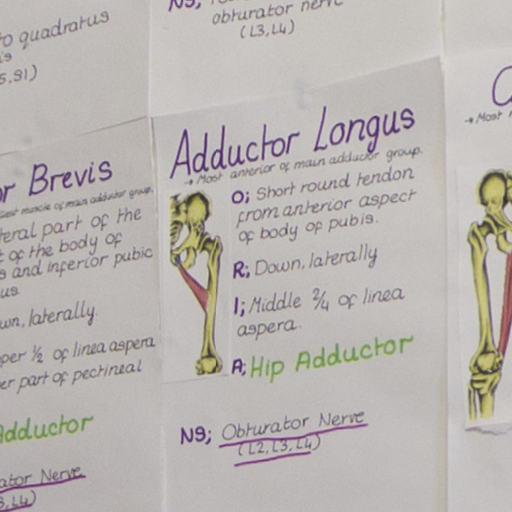 o quadratus
is
5,S1)
NS;
obturator nerve
(L3,L4)
r Brevis
muscle of main adductor group.
teral part of the
of the body of
s and inferior pubic
us
wn, laterally.
per 1/2 of linea aspera
er part of pectineal
Adductor
ator Nerve
3,L4)
Adductor Longus
→ Most anterior of main adductor group.
O; Short round tendon
from anterior aspect
of body of pubis.
R; Down, laterally
I; Middle 2/4 of linea
aspera.
A; Hip Adductor
NS; Obturator Nerve
(L2,L3,L4)
→ Most